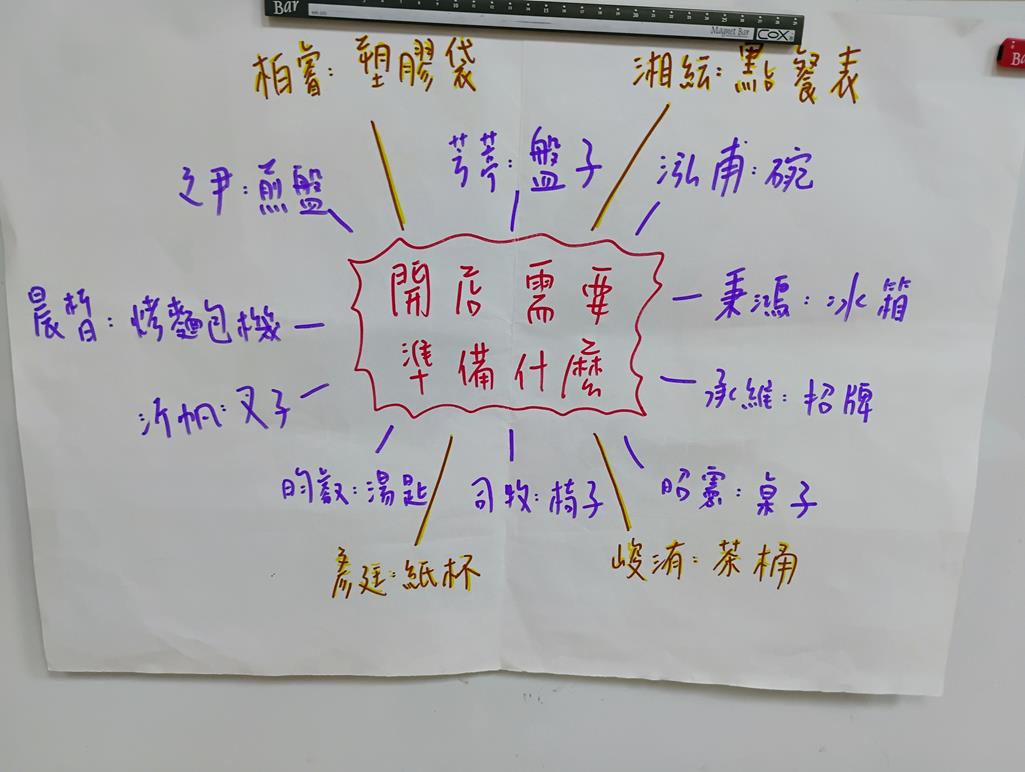 Bar
Magnet Bar COX
Ba
柏睿：塑膠袋
湘紜：點餐表
芛葶：盤子
泓甫：碗
之尹：煎盤
開店需要
準備什麼
秉鴻：冰箱
晨皙：烤麵包機
承維：招牌
沂帆：叉子
昀叡：湯匙
司牧：椅子
昭霖：桌子
彥廷：紙杯
峻洧：茶桶